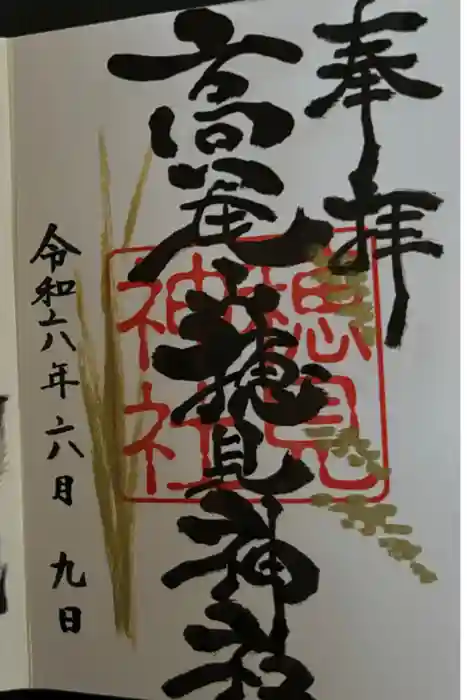 奉拝
高尾山穂見神社
穂見神社
令和六年六月九日